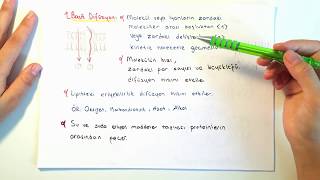 1. Basit Difüzyon:
Molekül veya iyonların zardaki
moleküller arası boşluktan
veya zardaki
kinetik hareketle geçmesi
Molekülün hızı,
zardaki por sayısı ve büyüklüğü
difüzyon hızını etkiler.
Lipitteki eriyebilirlik difüzyon hızını etkiler.
Ör: Oksijen, Karbondioksit, Azot, Alkol
Su ve suda eriyen maddeler taşıyıcı proteinlerin
arasından geçer.